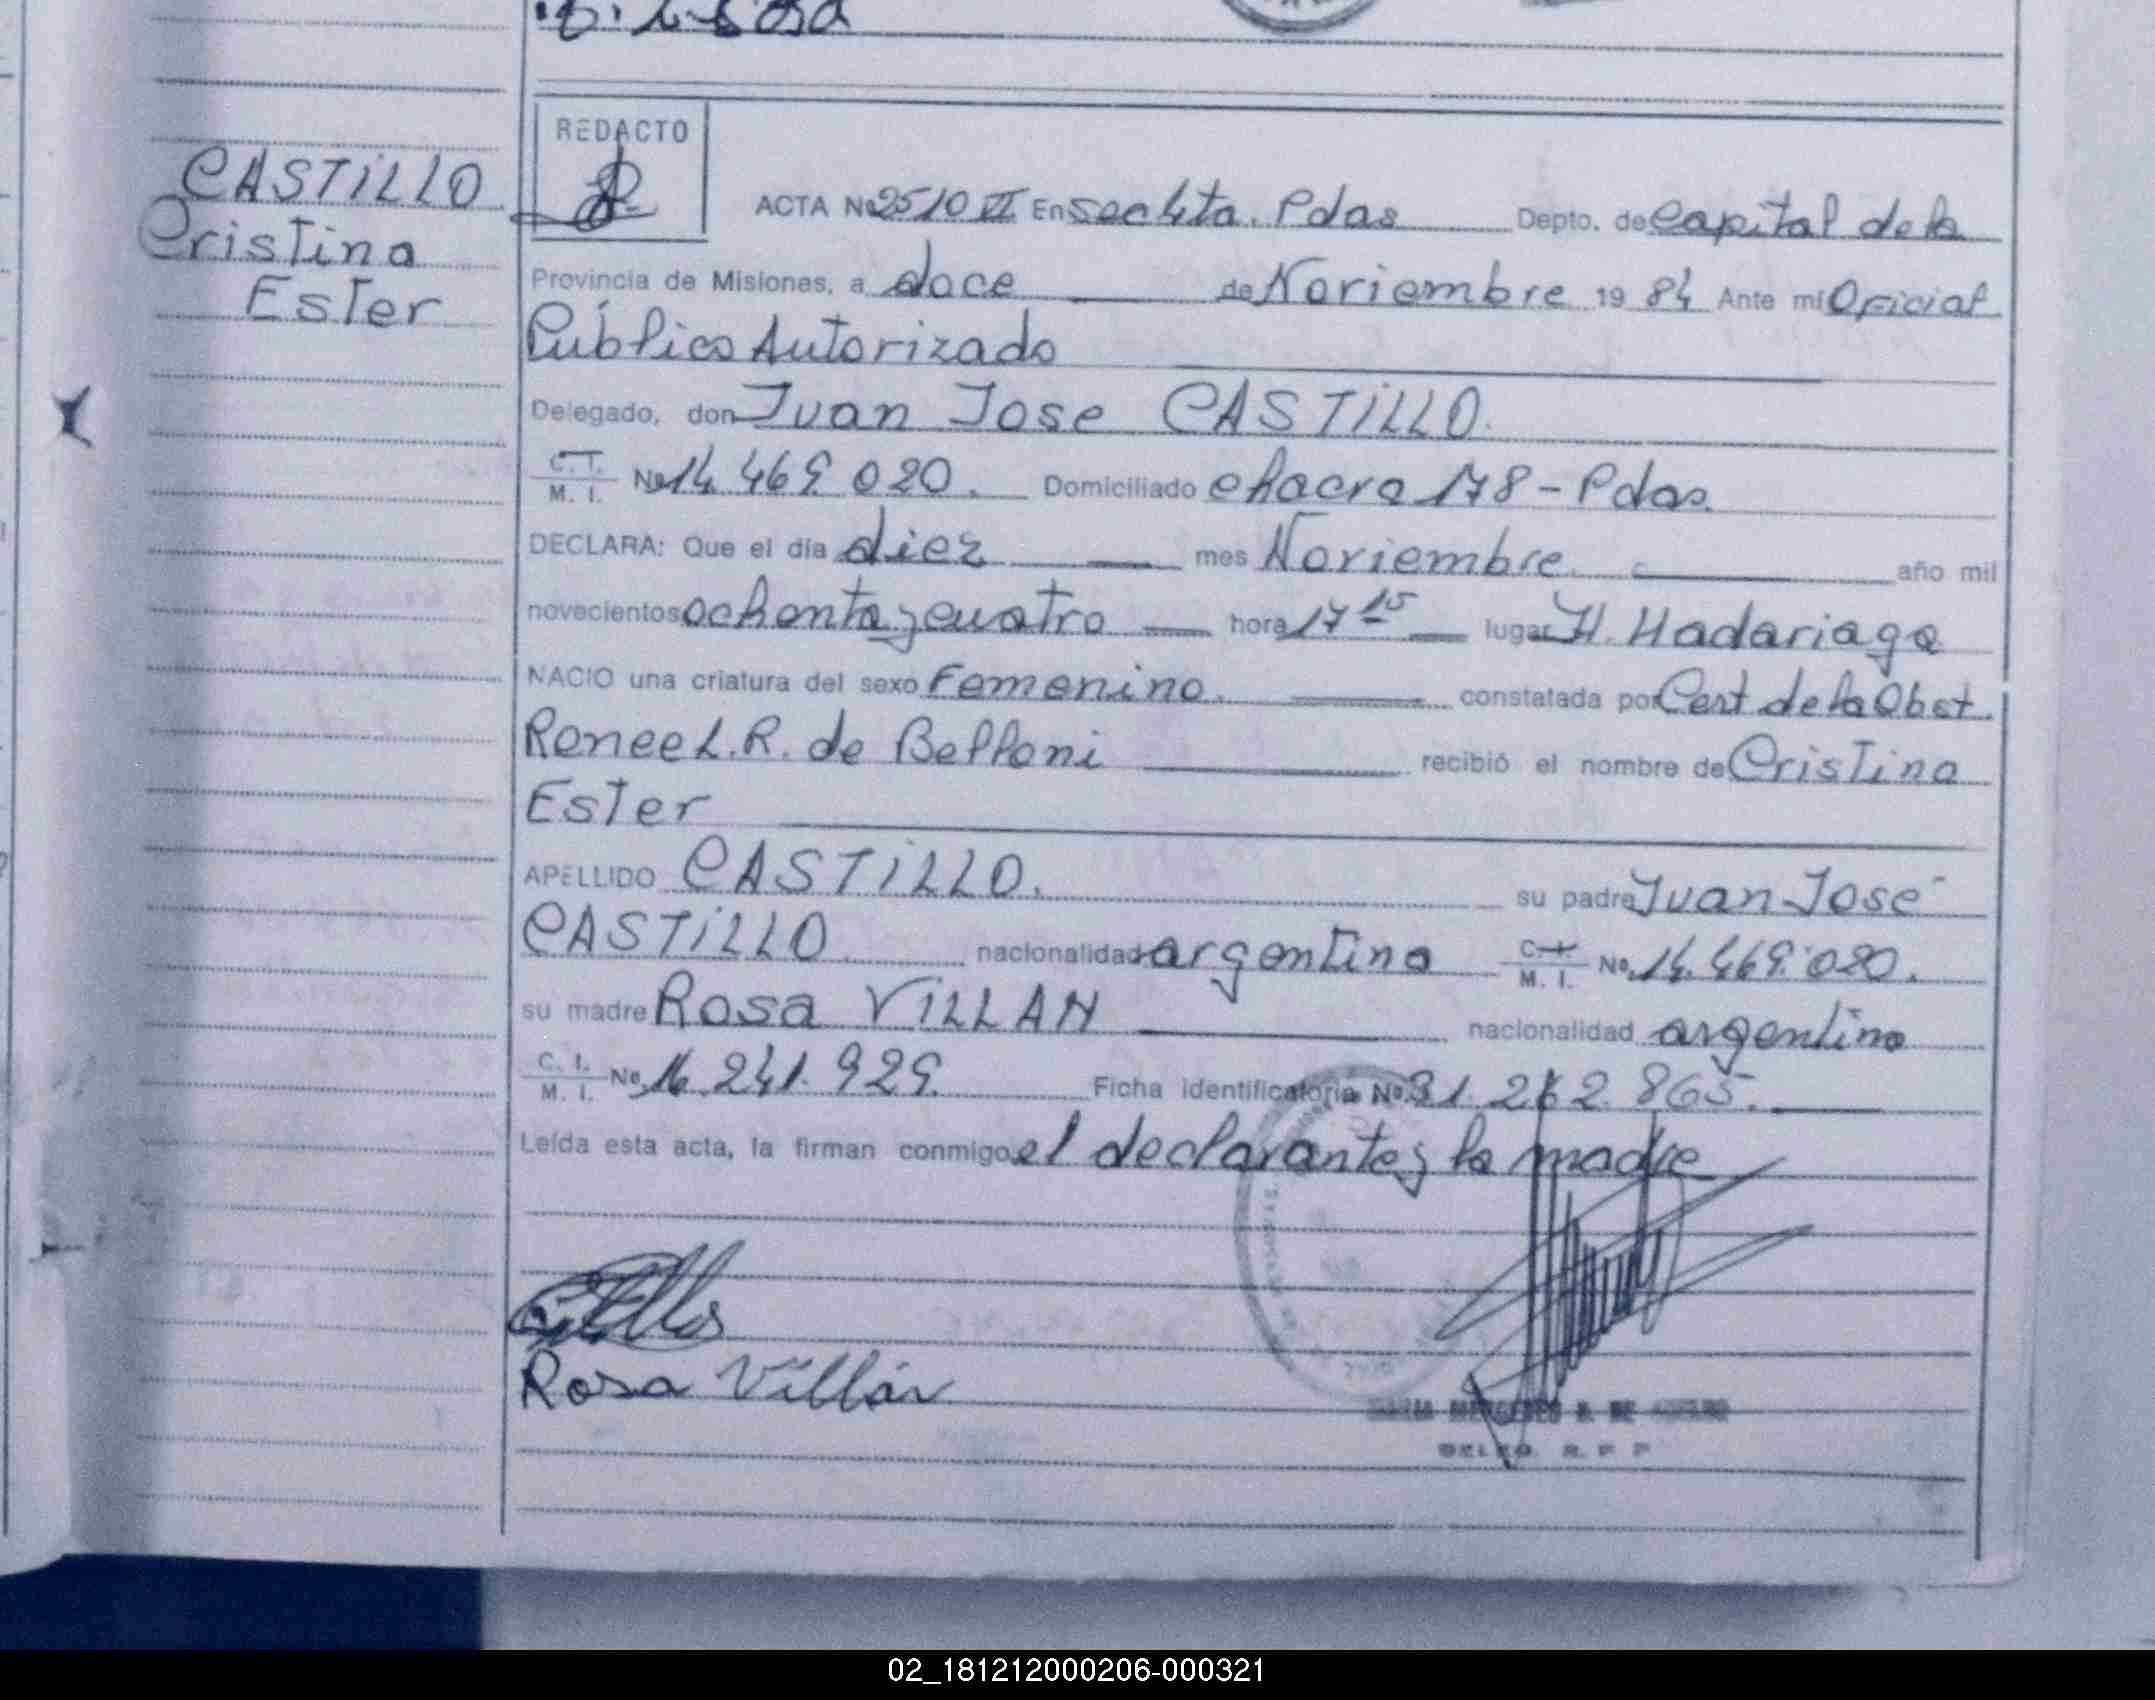 REDACTO
CASTILLO
Cristina
Ester
ACTA Nº 2510 VI En sec 4ta. Pdas Depto. de Capital de la
Provincia de Misiones, a doce de Noviembre 19 84 Ante mi Oficial
Público Autorizado
Delegado, don Juan Jose CASTILLO.
C.I. M. I. Nº 14.469.020. Domiciliado chacra 178 - Pdas.
DECLARA: Que el día diez mes Noviembre año mil
novecientos ochenta y cuatro hora 17 15 lugar H. Madariaga
NACIO una criatura del sexo Femenino. constatada por Cert de la Obst.
Renee L. R. de Belloni recibió el nombre de Cristina
Ester
APELLIDO CASTILLO. su padre Juan José
CASTILLO nacionalidad argentino C.I. M. I. No. 14.469.020.
su madre Rosa VILLAN nacionalidad argentino
C. I. M. I. No. 16.241.929. Ficha identificatoria Nº 31.262.865.
Leída esta acta, la firman conmigo el declarante y la madre
Rosa Villán
MERCEDES DE
R. P. P
02_181212000206-000321